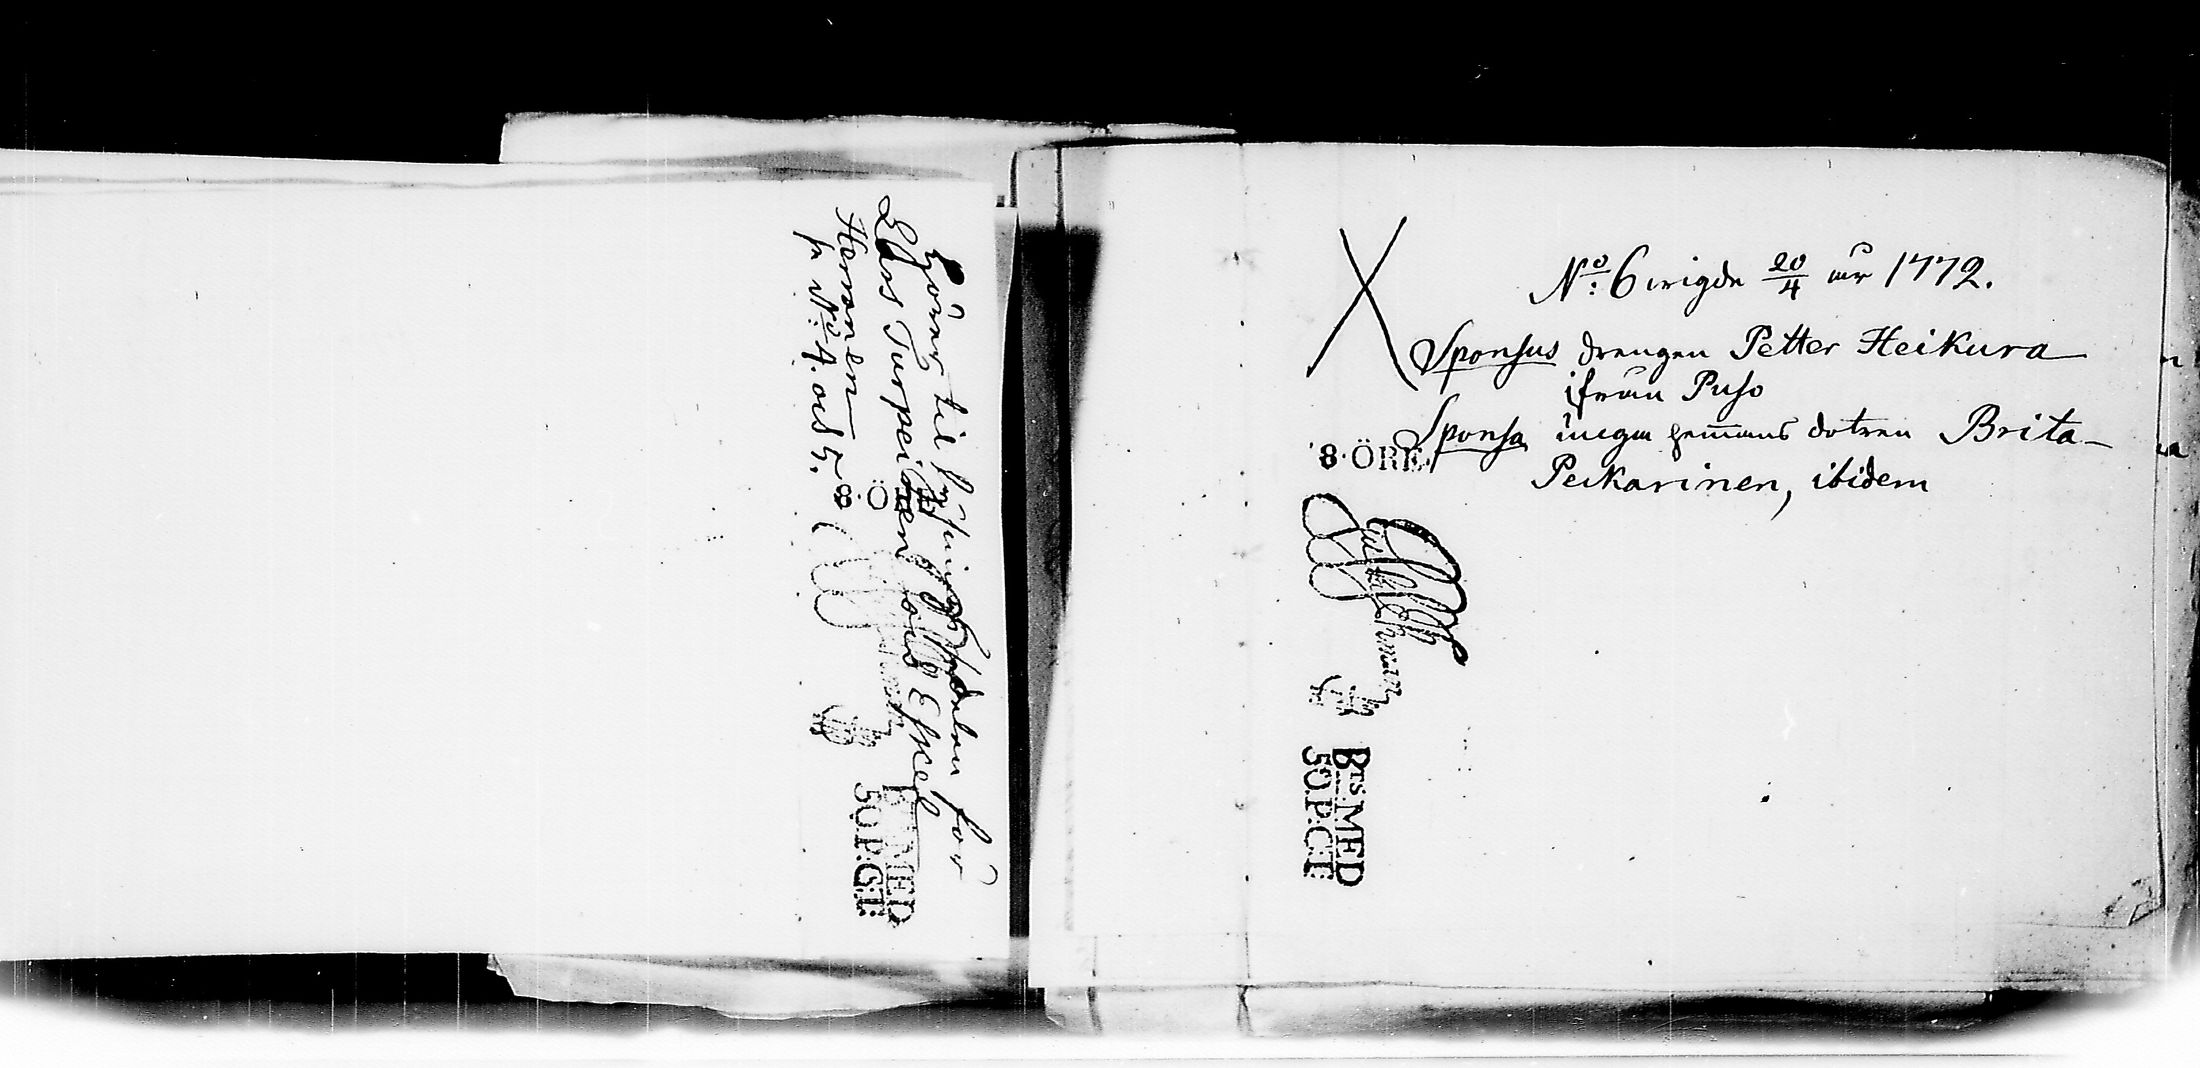 Hörer til lysnings sedelen för
Elias Turpeinen och Eskel
Hersonen
sr N:o 4. och 5.
8·ÖRE
BTS.MED
50.P:C:T:
N:o 6 wigde 20/4 åhr 1772.
Sponsus drengen Petter Heikura
ifrån Puso
Sponsa inega hemans dotren Brita
Peikarinen, ibidem
8·ÖRE.
BTS.MED
50.P:C:T: